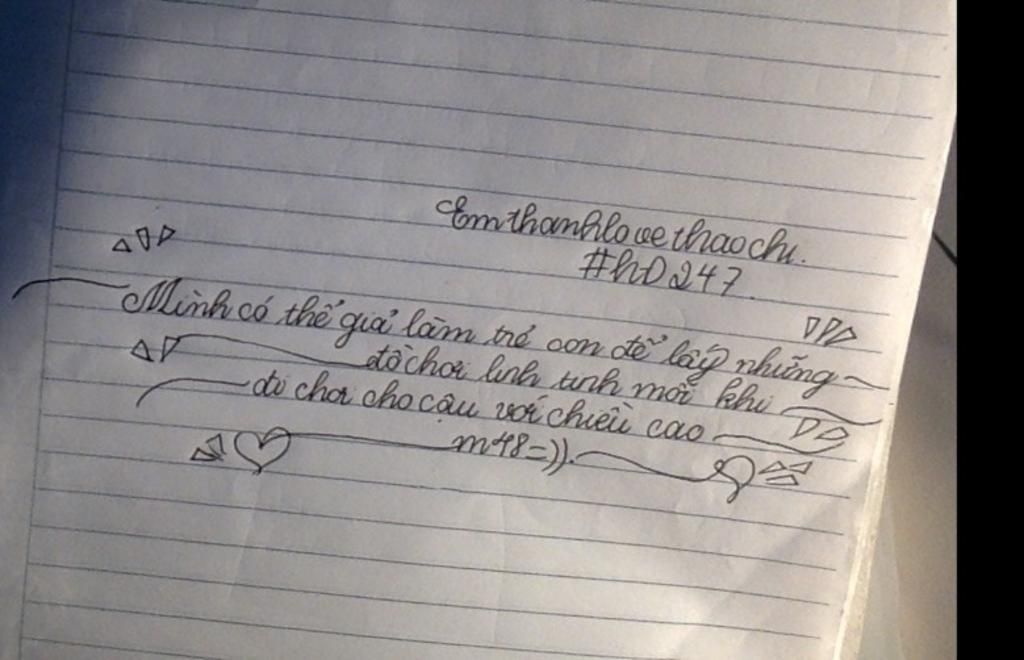 Emthanhlovethaochi.
#hD247.
Mình có thể giả làm trẻ con để lấy những
đồ chơi linh tinh mỗi khi
đi chơi cho cậu với chiều cao
m48=)).